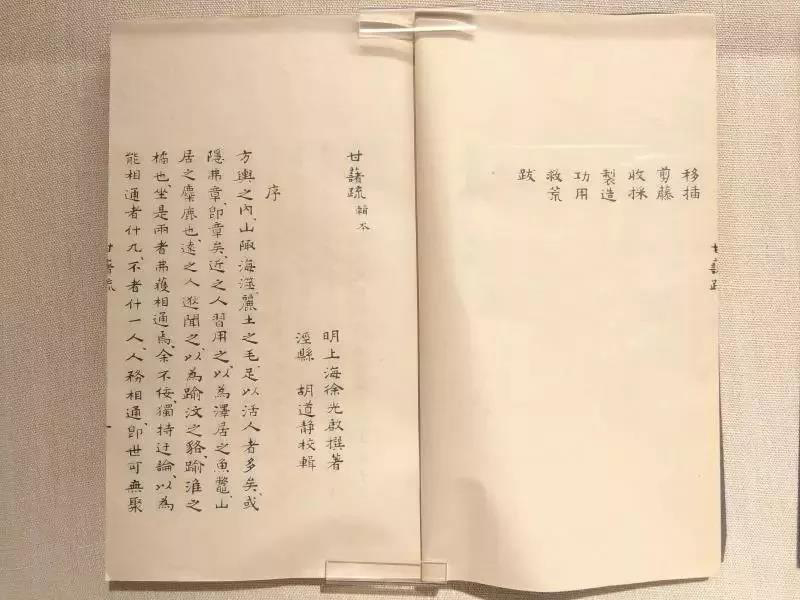 移插
剪藤
收採
製造
功用
救荒
跋
甘藷疏 輯本
明上海徐光啟撰著
涇縣 胡道靜校輯
序
方輿之內、山陬海澨、麗土之毛、足以活人者多矣、或
隱弗章、即章矣、近之人習用之、以為澤居之魚鼈、山
居之麋鹿也、遠之人逖聞之、以為踰汶之貉、踰淮之
橘也、坐是兩者弗獲相通焉、余不佞、獨持迂論、以為
能相通者什九、不者什一、人人務相通、即世可無聚
甘藷疏
一